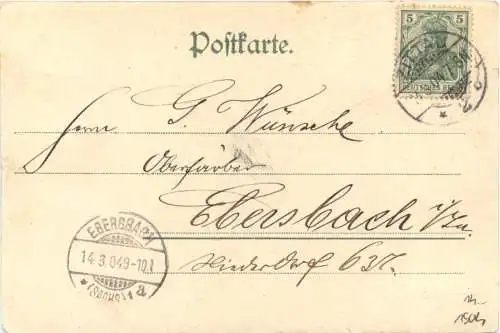 Postkarte.
5
5
DEUTSCHES REICH
Herrn G. Wünsche
Oberfärber
Ebersbach i/Sa.
Niederdorf 637.
EBERSBACH
14.3.04 9-10.V
* (SACHS) 1 a
1904